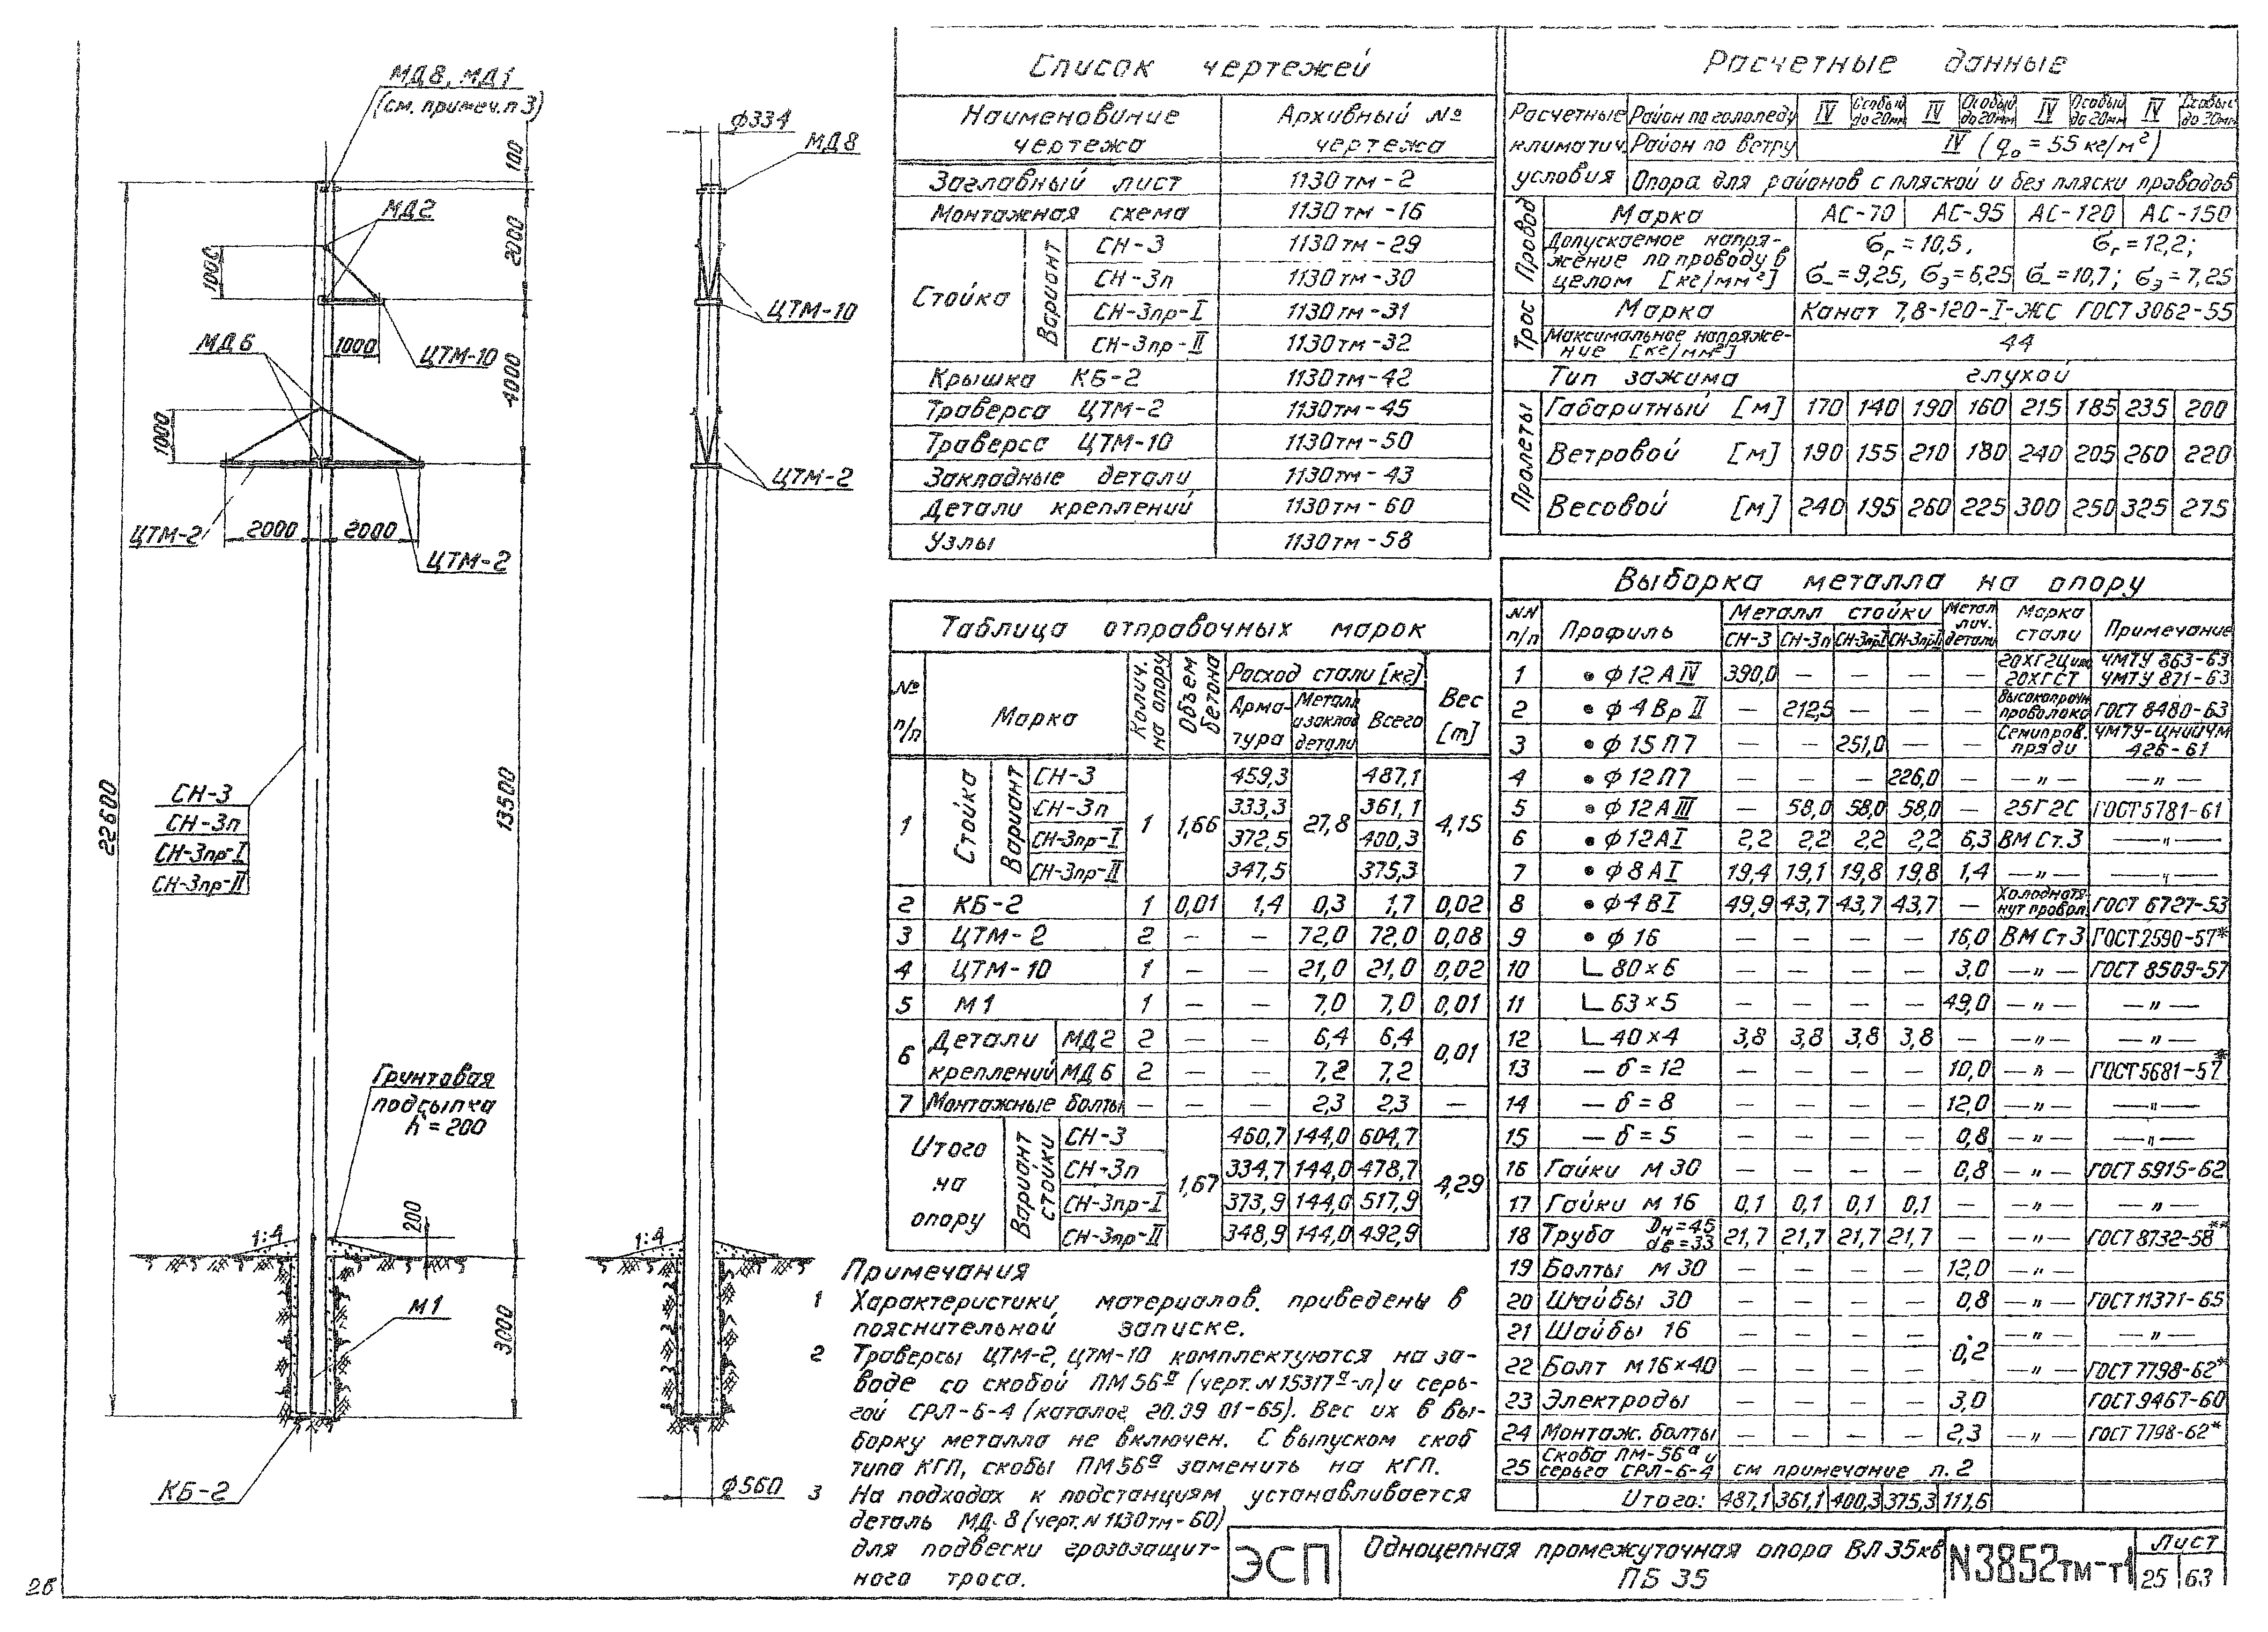 МД8, МД1
(см. примеч. п 3)
100
МД2
1000
2200
1000
ЦТМ-10
МД6
4000
1000
2000
2000
ЦТМ-2
ЦТМ-2
22600
13500
СН-3
СН-3п
СН-3пр-I
СН-3пр-II
Грунтовая
подсыпка
h = 200
200
1:4
М1
3000
КБ-2
26
ф334
МД8
ЦТМ-10
ЦТМ-2
1:4
ф560
Список чертежей
Наименование чертежа | Архивный № чертежа
Заглавный лист 1130тм-2
Монтажная схема 1130тм-16
Стойка Вариант СН-3 1130тм-29
СН-3п 1130тм-30
СН-3пр-I 1130тм-31
СН-3пр-II 1130тм-32
Крышка КБ-2 1130тм-42
Траверса ЦТМ-2 1130тм-45
Траверса ЦТМ-10 1130тм-50
Закладные детали 1130тм-43
Детали креплений 1130тм-60
Узлы 1130тм-58
Таблица отправочных марок
№ п/п | Марка | Колич. на опору | Объем бетона | Расход стали [кг] | Вес [т]
Арматура | Металл и заклад детали | Всего
1 Стойка Вариант СН-3 1 1,66 459,3 27,8 487,1 4,15
СН-3п 333,3 361,1
СН-3пр-I 372,5 400,3
СН-3пр-II 347,5 375,3
2 КБ-2 1 0,01 1,4 0,3 1,7 0,02
3 ЦТМ-2 2 — — 72,0 72,0 0,08
4 ЦТМ-10 1 — — 21,0 21,0 0,02
5 М1 1 — — 7,0 7,0 0,01
6 Детали креплений МД2 2 — — 6,4 6,4 0,01
МД6 2 — — 7,2 7,2
7 Монтажные болты — — — 2,3 2,3 —
Итого на опору Вариант стойки СН-3 1,67 460,7 144,0 604,7 4,29
СН-3п 334,7 144,0 478,7
СН-3пр-I 373,9 144,0 517,9
СН-3пр-II 348,9 144,0 492,9
Примечания
1 Характеристики материалов приведены в
пояснительной записке.
2 Траверсы ЦТМ-2, ЦТМ-10 комплектуются на за-
воде со скобой ПМ56а (черт. N15317а-л) и серь-
гой СРЛ-6-4 (каталог 20.09 01-65). Вес их в вы-
борку металла не включен. С выпуском скоб
типа КГП, скобы ПМ56а заменить на КГП.
3 На подходах к подстанциям устанавливается
деталь МД-8 (черт. N 1130тм-60)
для подвески грозозащит-
ного троса.
Расчетные данные
Расчетные климатич. условия
Район по гололеду IV Особый до 20мм IV Особый до 20мм IV Особый до 20мм IV Особый до 20мм
Район по ветру IV (q₀ = 55 кг/м²)
Опора для районов с пляской и без пляски проводов
Провод Марка АС-70 АС-95 АС-120 АС-150
Допускаемое напря-
жение по проводу в
целом [кг/мм²]
бг = 10,5,
б- = 9,25, бэ = 6,25
бг = 12,2;
б- = 10,7; бэ = 7,25
Трос Марка Канат 7,8-120-I-ЖС ГОСТ 3062-55
Максимальное напряже-
ние [кг/мм²] 44
Тип зажима глухой
Пролеты Габаритный [м] 170 140 190 160 215 185 235 200
Ветровой [м] 190 155 210 180 240 205 260 220
Весовой [м] 240 195 260 225 300 250 325 275
Выборка металла на опору
NN п/п | Профиль | Металл стойки | Метал лич. детали | Марка стали | Примечание
СН-3 СН-3п СН-3прI СН-3прII
1 • ф 12 А IV 390,0 — — — — 20ХГ2Ц или 20ХГСТ ЧМТУ 863-63 ЧМТУ 871-63
2 • ф 4 Вр II — 212,5 — — — Высокопрочн проволока ГОСТ 8480-63
3 • ф 15 П7 — — 251,0 — — Семипров. пряди ЧМТУ-ЦНИИЧМ 426-61
4 • ф 12 П7 — — — 226,0 — —"— —"—
5 • ф 12 А III — 58,0 58,0 58,0 — 25Г2С ГОСТ 5781-61
6 • ф 12 А I 2,2 2,2 2,2 2,2 6,3 ВМ Ст.3 —"—
7 • ф 8 А I 19,4 19,1 19,8 19,8 1,4 —"— —"—
8 • ф 4 В I 49,9 43,7 43,7 43,7 — Холоднотянут провол. ГОСТ 6727-53
9 • ф 16 — — — — 16,0 ВМ Ст 3 ГОСТ 2590-57*
10 ∟ 80×6 — — — — 3,0 —"— ГОСТ 8509-57
11 ∟ 63×5 — — — — 49,0 —"— —"—
12 ∟ 40×4 3,8 3,8 3,8 3,8 — —"— —"—
13 — δ = 12 — — — — 10,0 —"— ГОСТ 5681-57*
14 — δ = 8 — — — — 12,0 —"— —"—
15 — δ = 5 — — — — 0,8 —"— —"—
16 Гайки М 30 — — — — 0,8 —"— ГОСТ 5915-62
17 Гайки М 16 0,1 0,1 0,1 0,1 — —"— —"—
18 Труба Dн=45 dв=33 21,7 21,7 21,7 21,7 — —"— ГОСТ 8732-58**
19 Болты М 30 — — — — 12,0 —"—
20 Шайбы 30 — — — — 0,8 —"— ГОСТ 11371-65
21 Шайбы 16 — — — — 0,2 —"— —"—
22 Болт М16×40 — — — — —"— ГОСТ 7798-62*
23 Электроды — — — — 3,0 ГОСТ 9467-60
24 Монтаж. болты — — — — 2,3 —"— ГОСТ 7798-62*
25 Скоба ПМ-56а и серьга СРЛ-6-4 см примечание п. 2
Итого: 487,1 361,1 400,3 375,3 111,6
ЭСП
Одноцепная промежуточная опора ВЛ 35кв
ПБ 35
N3852тм-т1
Лист
25 63